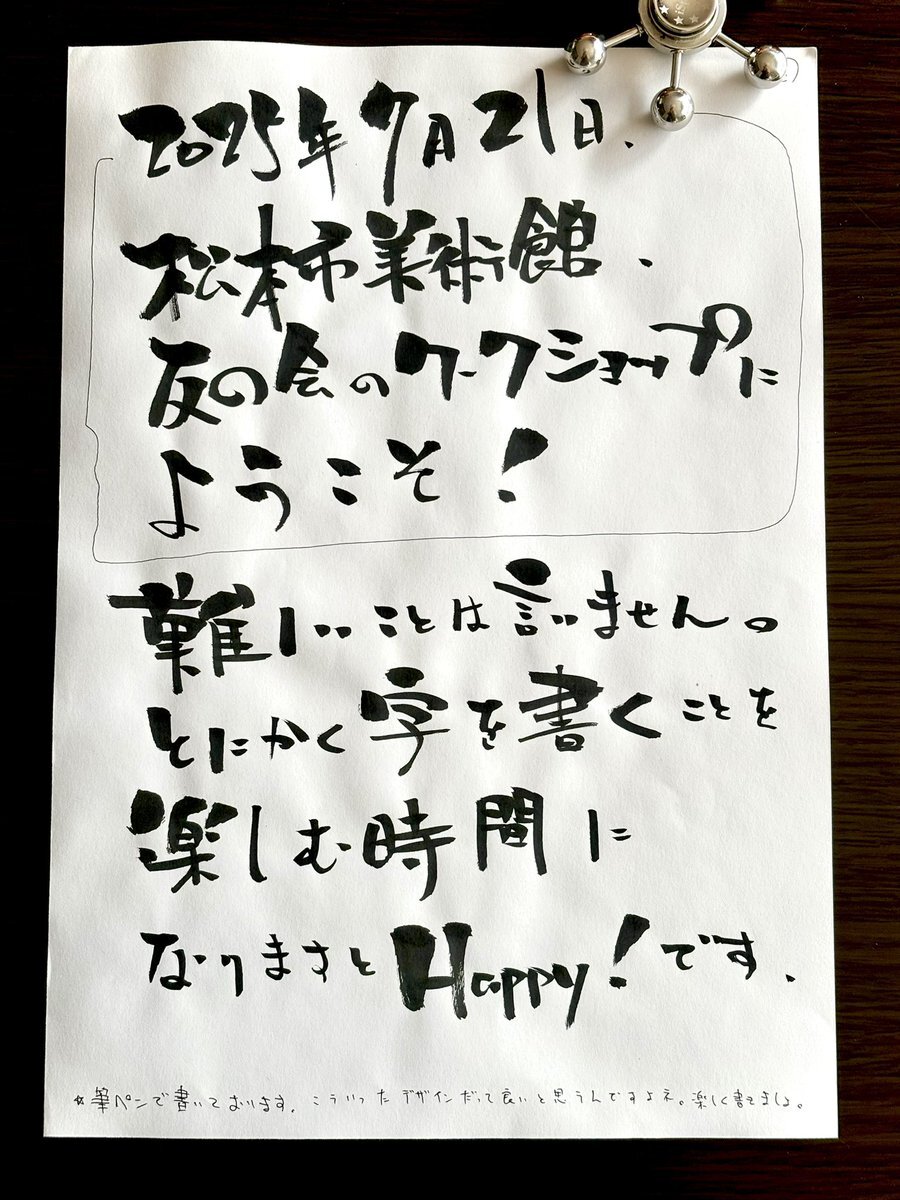 2025年7月21日.
松本市美術館.
友の会のワークショップに
ようこそ!
難しいことは言いません。
とにかく字を書くことを
楽しむ時間に
なりますと Happy!です.
☆筆ペンで書いております. こういったデザインだって良いと思うんですよネ。楽しく書きましょ。